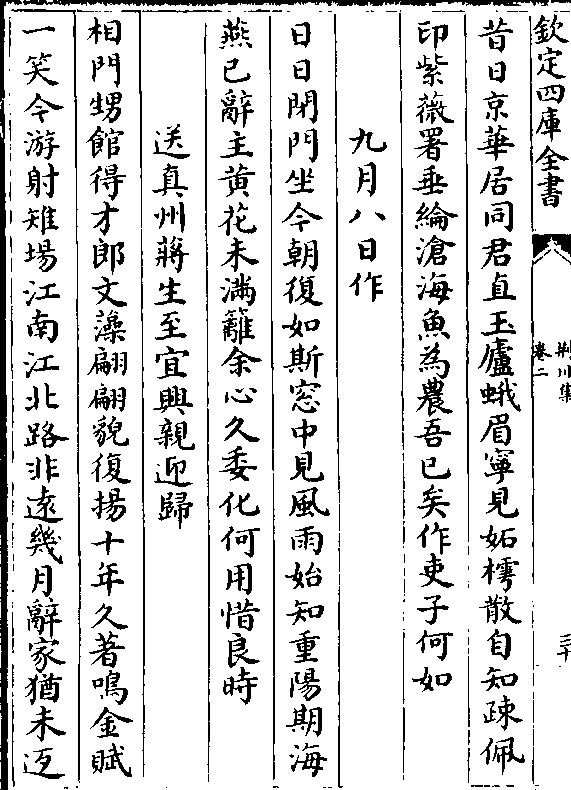 欽定四庫全書
荆川集
卷二
三十
昔日京華居同君直玉廬蛾眉寧見妬樗散自知疎佩
印紫薇署垂綸滄海魚為農吾已矣作吏子何如
九月八日作
日日閉門坐今朝復如斯窓中見風雨始知重陽期海
燕已辭主黄花未滿籬余心久委化何用惜良時
送真州蔣生至宜興親迎歸
相門甥館得才郎文藻翩翩貌復揚十年久著鳴金賦
一笑今游射雉場江南江北路非遠幾月辭家猶未返